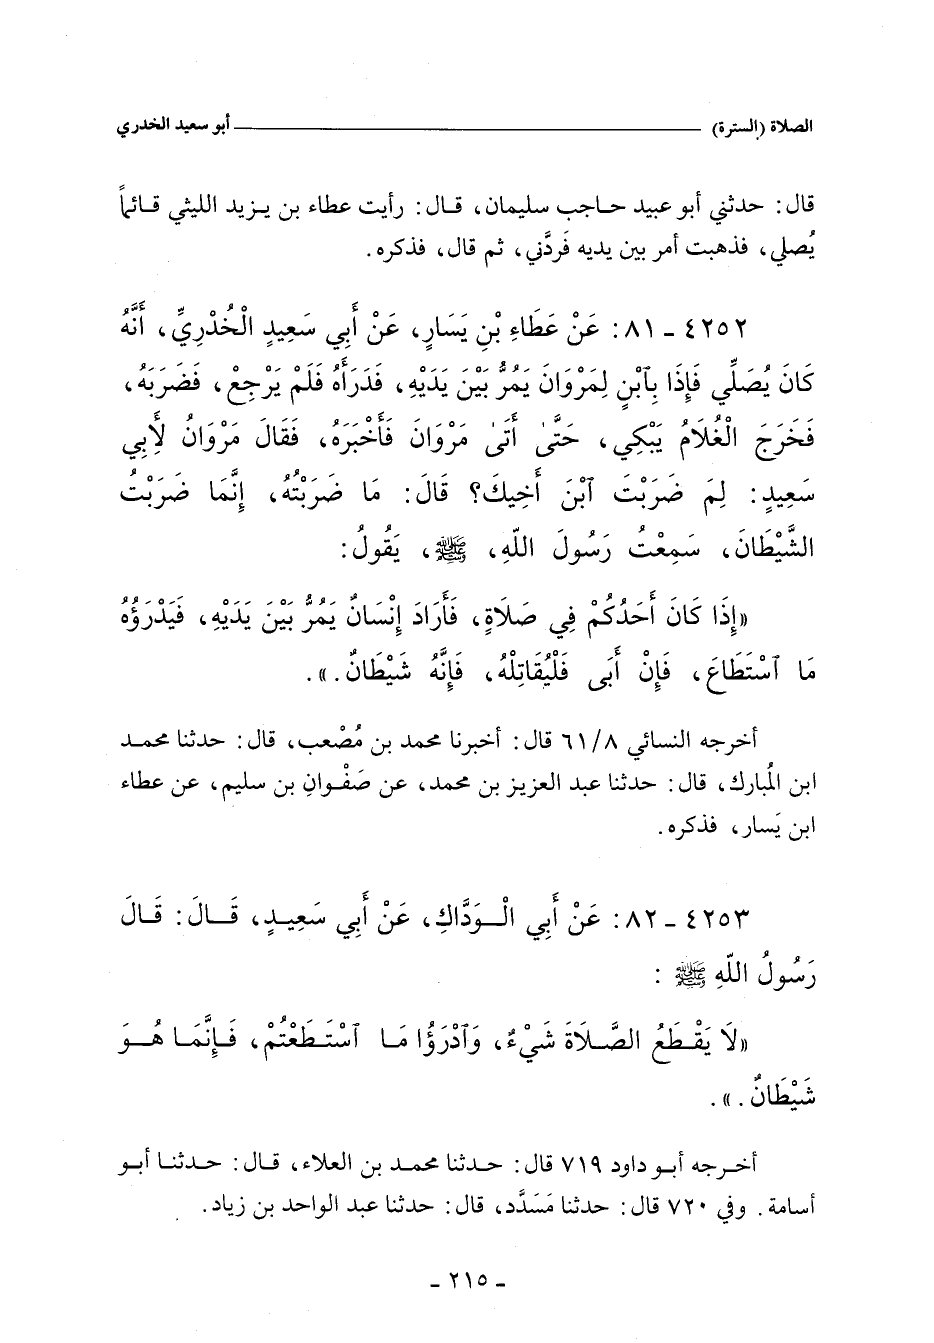 الصلاة (السترة) أبو سعيد الخدري
قال: حدثني أبو عبيد حاجب سليمان، قال: رأيت عطاء بن يزيد الليثي قائماً
يُصلي، فذهبت أمر بين يديه فَردَّني، ثم قال، فذكره.
٤٢٥٢ - ٨١: عَنْ عَطَاءِ بْنِ يَسَارٍ، عَنْ أَبِي سَعِيدٍ الْخُدْرِيِّ، أَنَّهُ
كَانَ يُصَلِّي فَإِذَا بِٱبْنٍ لِمَرْوَانَ يَمُرُّ بَيْنَ يَدَيْهِ، فَدَرَأَهُ فَلَمْ يَرْجِعْ، فَضَرَبَهُ،
فَخَرَجَ الْغُلَامُ يَبْكِي، حَتَّىٰ أَتَىٰ مَرْوَانَ فَأَخْبَرَهُ، فَقَالَ مَرْوَانُ لِأَبِي
سَعِيدٍ: لِمَ ضَرَبْتَ ٱبْنَ أَخِيكَ؟ قَالَ: مَا ضَرَبْتُهُ، إِنَّمَا ضَرَبْتُ
الشَّيْطَانَ، سَمِعْتُ رَسُولَ اللّهِ، ﷺ، يَقُولُ:
«إِذَا كَانَ أَحَدُكُمْ فِي صَلَاةٍ، فَأَرَادَ إِنْسَانٌ يَمُرُّ بَيْنَ يَدَيْهِ، فَيَدْرَؤُهُ
مَا ٱسْتَطَاعَ، فَإِنْ أَبَى فَلْيُقَاتِلْهُ، فَإِنَّهُ شَيْطَانٌ.».
أخرجه النسائي ٦١/٨ قال: أخبرنا محمد بن مُصْعب، قال: حدثنا محمد
ابن المُبارك، قال: حدثنا عبد العزيز بن محمد، عن صَفْوانِ بن سليم، عن عطاء
ابن يَسار، فذكره.
٤٢٥٣ - ٨٢: عَنْ أَبِي الْوَدَّاكِ، عَنْ أَبِي سَعِيدٍ، قَالَ: قَالَ
رَسُولُ اللّهِ ﷺ:
«لَا يَقْطَعُ الصَّلَاةَ شَيْءٌ، وَٱدْرَؤُا مَا ٱسْتَطَعْتُمْ، فَإِنَّمَا هُوَ
شَيْطَانٌ.».
أخرجه أبو داود ٧١٩ قال: حدثنا محمد بن العلاء، قال: حدثنا أبو
أسامة. وفي ٧٢٠ قال: حدثنا مَسَدَّد، قال: حدثنا عبد الواحد بن زياد.
- ٢١٥ -